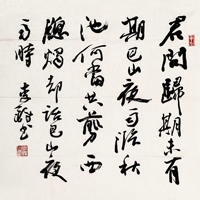 君問歸期未有
期巴山夜雨漲秋
池何當共剪西
牕燭却話巴山夜
雨時